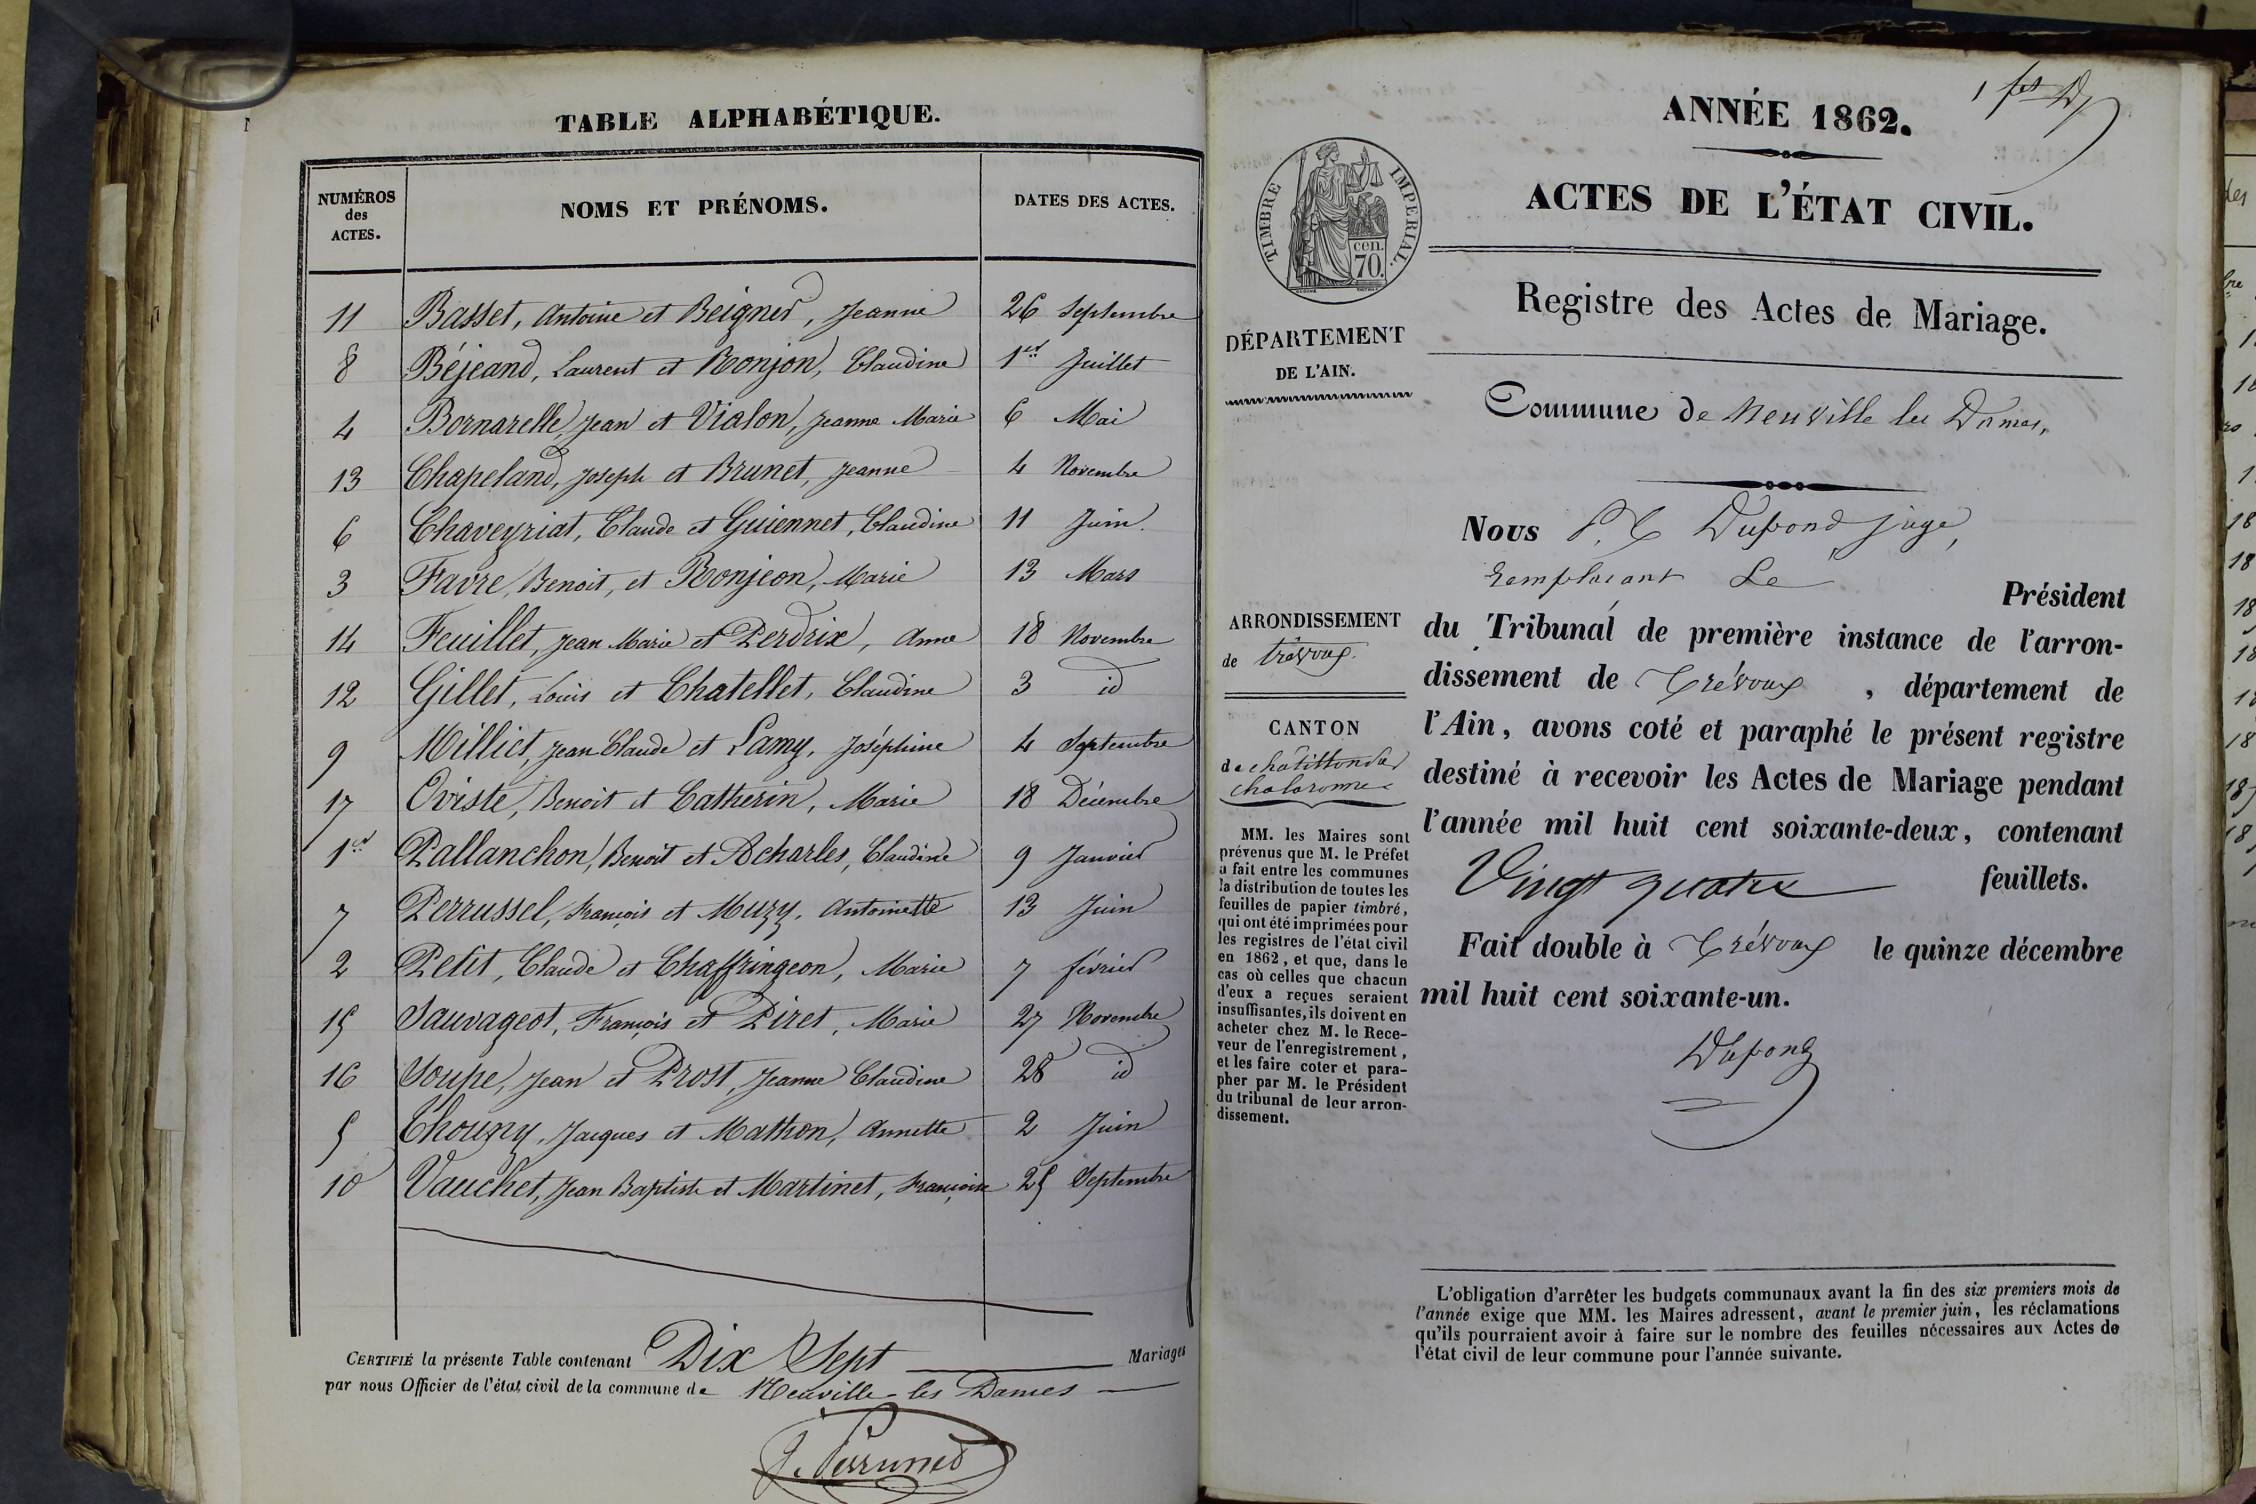 TABLE ALPHABÉTIQUE.
NUMÉROS des ACTES. NOMS ET PRÉNOMS. DATES DES ACTES.
11 Basset, Antoine et Beigner, Jeanne 26 Septembre
8 Béjeand, Laurent et Ronjon, Claudine 1er Juillet
4 Bornarelle, Jean et Vialon, Jeanne Marie 6 Mai
13 Chapeland, Joseph et Brunet, Jeanne 4 Novembre
6 Chaveyriat, Claude et Guiennet, Claudine 11 Juin.
3 Favre, Benoit, et Ronjeon, Marie 13 Mars
14 Feuillet, Jean Marie et Perdrix, Anne 18 Novembre
12 Gillet, Louis et Chatellet, Claudine 3 id
9 Milliet, Jean Claude et Lamy, Joséphine 4 Septembre
17 Oviste, Benoit et Catherin, Marie 18 Décembre
1er Pallanchon, Benoit et Acharles, Claudine 9 Janvier
7 Perrussel, François et Muzy, Antoinette 13 Juin
2 Petit, Claude et Chaffringeon, Marie 7 février
15 Sauvageot, François et Piret, Marie 27 Novembre
16 Soupe, Jean et Prost, Jeanne Claudine 28 id
5 Thougny, Jacques et Mathon, Annette 2 Juin
10 Vauchet, Jean Baptiste et Martinet, Françoise 25 Septembre
CERTIFIÉ la présente Table contenant Dix Sept Mariages
par nous Officier de l'état civil de la commune de Neuville-les Dames
ANNÉE 1862.
ACTES DE L'ÉTAT CIVIL.
TIMBRE IMPERIAL.
cen.
70.
Registre des Actes de Mariage.
DÉPARTEMENT
DE L'AIN.
Commune de Neuville les Dames,
Nous P. C Dupond juge,
remplacant Le
Président
du Tribunal de première instance de l'arron-
dissement de Trévoux, département de
l'Ain, avons coté et paraphé le présent registre
destiné à recevoir les Actes de Mariage pendant
l'année mil huit cent soixante-deux, contenant
Vingt quatre feuillets.
Fait double à Trévoux le quinze décembre
mil huit cent soixante-un.
Dupond
ARRONDISSEMENT
de trévoux.
CANTON
de chatillon sur
chalaronne
MM. les Maires sont
prévenus que M. le Préfet
a fait entre les communes
la distribution de toutes les
feuilles de papier timbré,
qui ont été imprimées pour
les registres de l'état civil
en 1862, et que, dans le
cas où celles que chacun
d'eux a reçues seraient
insuffisantes, ils doivent en
acheter chez M. le Rece-
veur de l'enregistrement,
et les faire coter et para-
pher par M. le Président
du tribunal de leur arron-
dissement.
L'obligation d'arrêter les budgets communaux avant la fin des six premiers mois de
l'année exige que MM. les Maires adressent, avant le premier juin, les réclamations
qu'ils pourraient avoir à faire sur le nombre des feuilles nécessaires aux Actes de
l'état civil de leur commune pour l'année suivante.